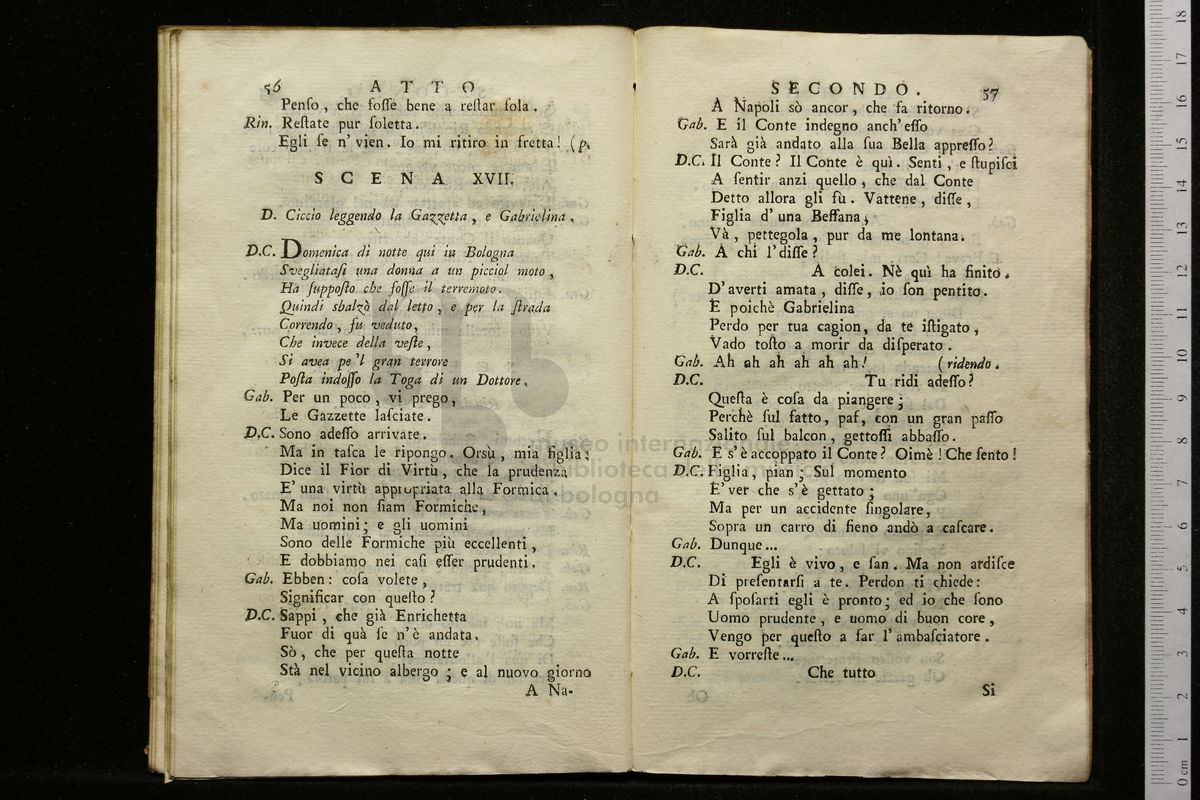 56 ATTO
Penſo, che foſſe bene a reſtar ſola.
Rin. Reſtate pur ſoletta.
Egli ſe n' vien. Io mi ritiro in fretta! (p.
SCENA XVII.
D. Ciccio leggendo la Gazzetta, e Gabrielina.
D.C. Domenica di notte qui in Bologna
Svegliataſi una donna a un picciol moto,
Ha ſuppoſto che foſſe il terremoto.
Quindi sbalzò dal letto, e per la ſtrada
Correndo, fu veduto,
Che invece della veſte,
Si avea pe 'l gran terrore
Poſta indoſſo la Toga di un Dottore.
Gab. Per un poco, vi prego,
Le Gazzette laſciate.
D.C. Sono adeſſo arrivate.
Ma in taſca le ripongo. Orsù, mia figlia;
Dice il Fior di Virtù, che la prudenza
E' una virtù appropriata alla Formica.
Ma noi non ſiam Formiche,
Ma uomini; e gli uomini
Sono delle Formiche più eccellenti,
E dobbiamo nei caſi eſſer prudenti.
Gab. Ebben: coſa volete,
Significar con queſto?
D.C. Sappi, che già Enrichetta
Fuor di quà ſe n'è andata.
Sò, che per queſta notte
Stà nel vicino albergo; e al nuovo giorno
A Na-
SECONDO. 57
A Napoli sò ancor, che fa ritorno.
Gab. E il Conte indegno anch'eſſo
Sarà già andato alla ſua Bella appreſſo?
D.C. Il Conte? Il Conte è quì. Senti, e ſtupiſci
A ſentir anzi quello, che dal Conte
Detto allora gli fù. Vattene, diſſe,
Figlia d'una Beffana,
Và, pettegola, pur da me lontana.
Gab. A chi l'diſſe?
D.C. A colei. Nè quì ha finito.
D'averti amata, diſſe, io ſon pentito.
E poichè Gabrielina
Perdo per tua cagion, da te iſtigato,
Vado toſto a morir da diſperato.
Gab. Ah ah ah ah ah ah! (ridendo.
D.C. Tu ridi adeſſo?
Queſta è coſa da piangere;
Perchè ſul fatto, paf, con un gran paſſo
Salito ſul balcon, gettoſſi abbaſſo.
Gab. E s'è accoppato il Conte? Oimè! Che ſento!
D.C. Figlia, pian; Sul momento
E' ver che s'è gettato;
Ma per un accidente ſingolare,
Sopra un carro di fieno andò a caſcare.
Gab. Dunque...
D.C. Egli è vivo, e ſan. Ma non ardiſce
Di preſentarſi a te. Perdon ti chiede:
A ſpoſarti egli è pronto; ed io che ſono
Uomo prudente, e uomo di buon core,
Vengo per queſto a far l'ambaſciatore.
Gab. E vorreſte...
D.C. Che tutto
Si